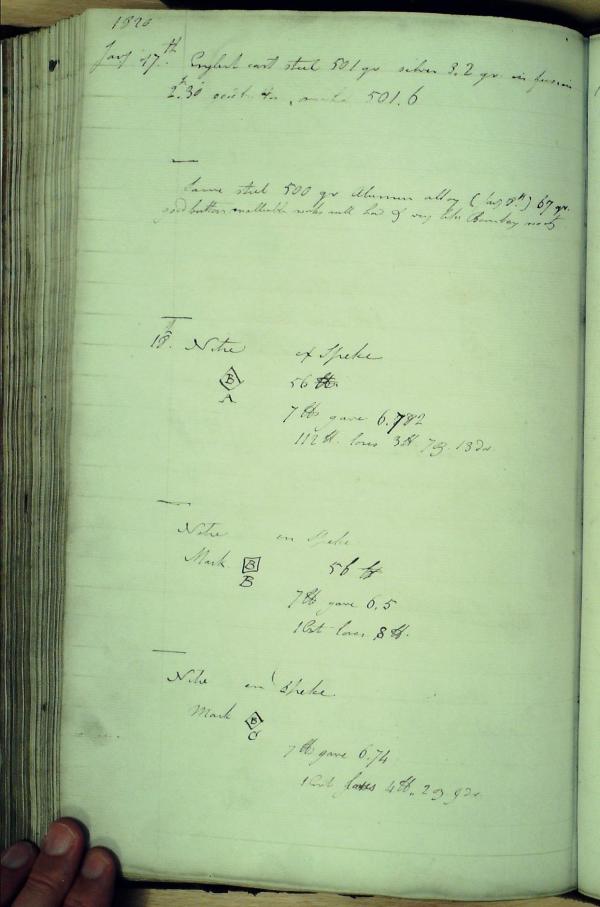 1820
Jany 17th. English cast steel 501 gr silver 3.2 gr. in fusion
2h.30 501.6
Same steel 500 gr Alumine alloy (Jany 8th) 67 gr.
good button malleable works well hard & very like Bombay wootz
18. Nitre ex Speke
B 56 lb
A
7 lb gave 6.782
112 lb. loses 3 lb. 7 oz. 13 dr
Nitre ex Speke
Mark B 56 lb
B
7 lb gave 6.5
1 Cwt loses 8 lb.
Nitre ex Speke
Mark B
C
7 lb gave 6.74
1 Cwt loses 4 lb. 2 oz 9 dr